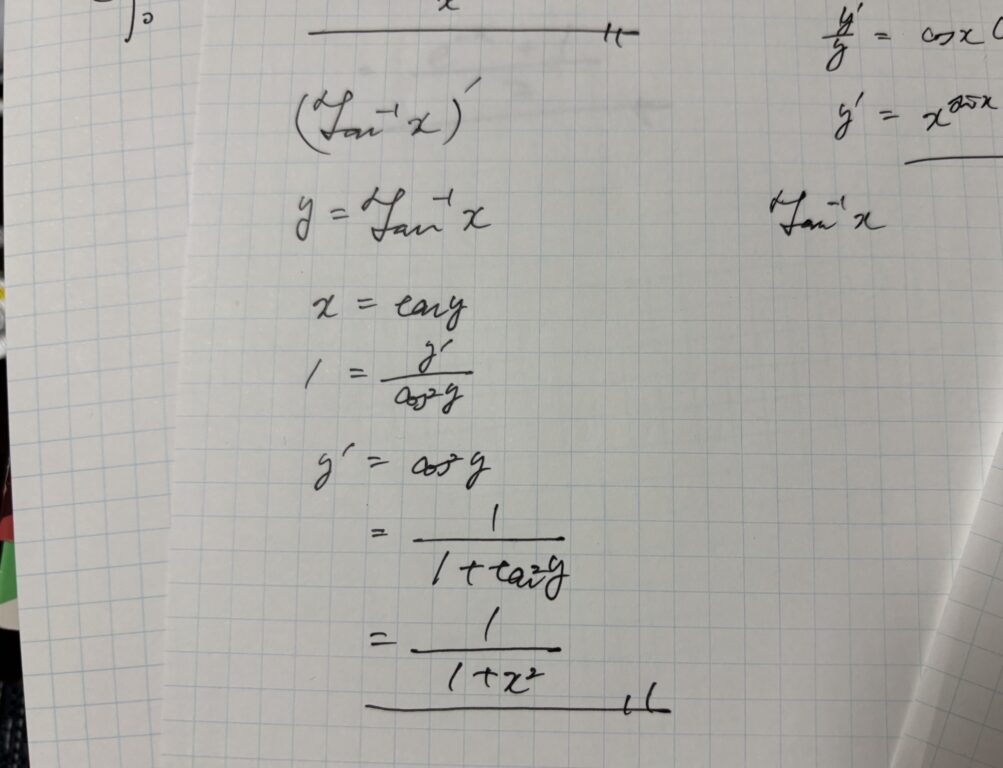 (Tan⁻¹ x)′
y = Tan⁻¹ x
x = tan y
1 = y′ / cos² y
y′ = cos² y
= 1 / (1 + tan² y)
= 1 / (1 + x²)
y′ / y = cos x (
y′ = x^sin x
Tan⁻¹ x